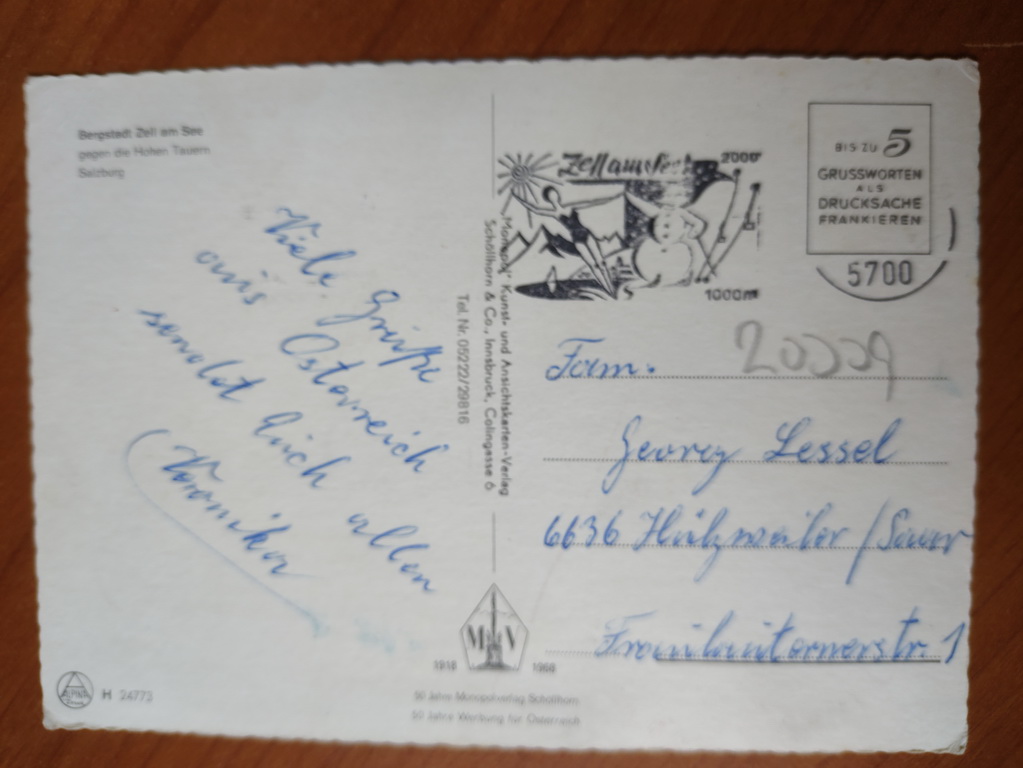 Bergstadt Zell am See
gegen die Hohen Tauern
Salzburg
Viele Grüße
aus Österreich
sendet Euch allen
Veronika
"Monopol" Kunst- und Ansichtskarten-Verlag
Schöllhorn & Co., Innsbruck, Colingasse 6
Tel. Nr. 05222/29816
Zell am See
2000
1000m
BIS ZU 5
GRUSSWORTEN
ALS
DRUCKSACHE
FRANKIEREN
5700
Fam.
Georg Lessel
6636 Hülzweiler /Saar
Fraulauternerstr. 1
M V
1918 1968
50 Jahre Monopolverlag Schöllhorn
50 Jahre Werbung für Österreich
ALPINA
H 24773